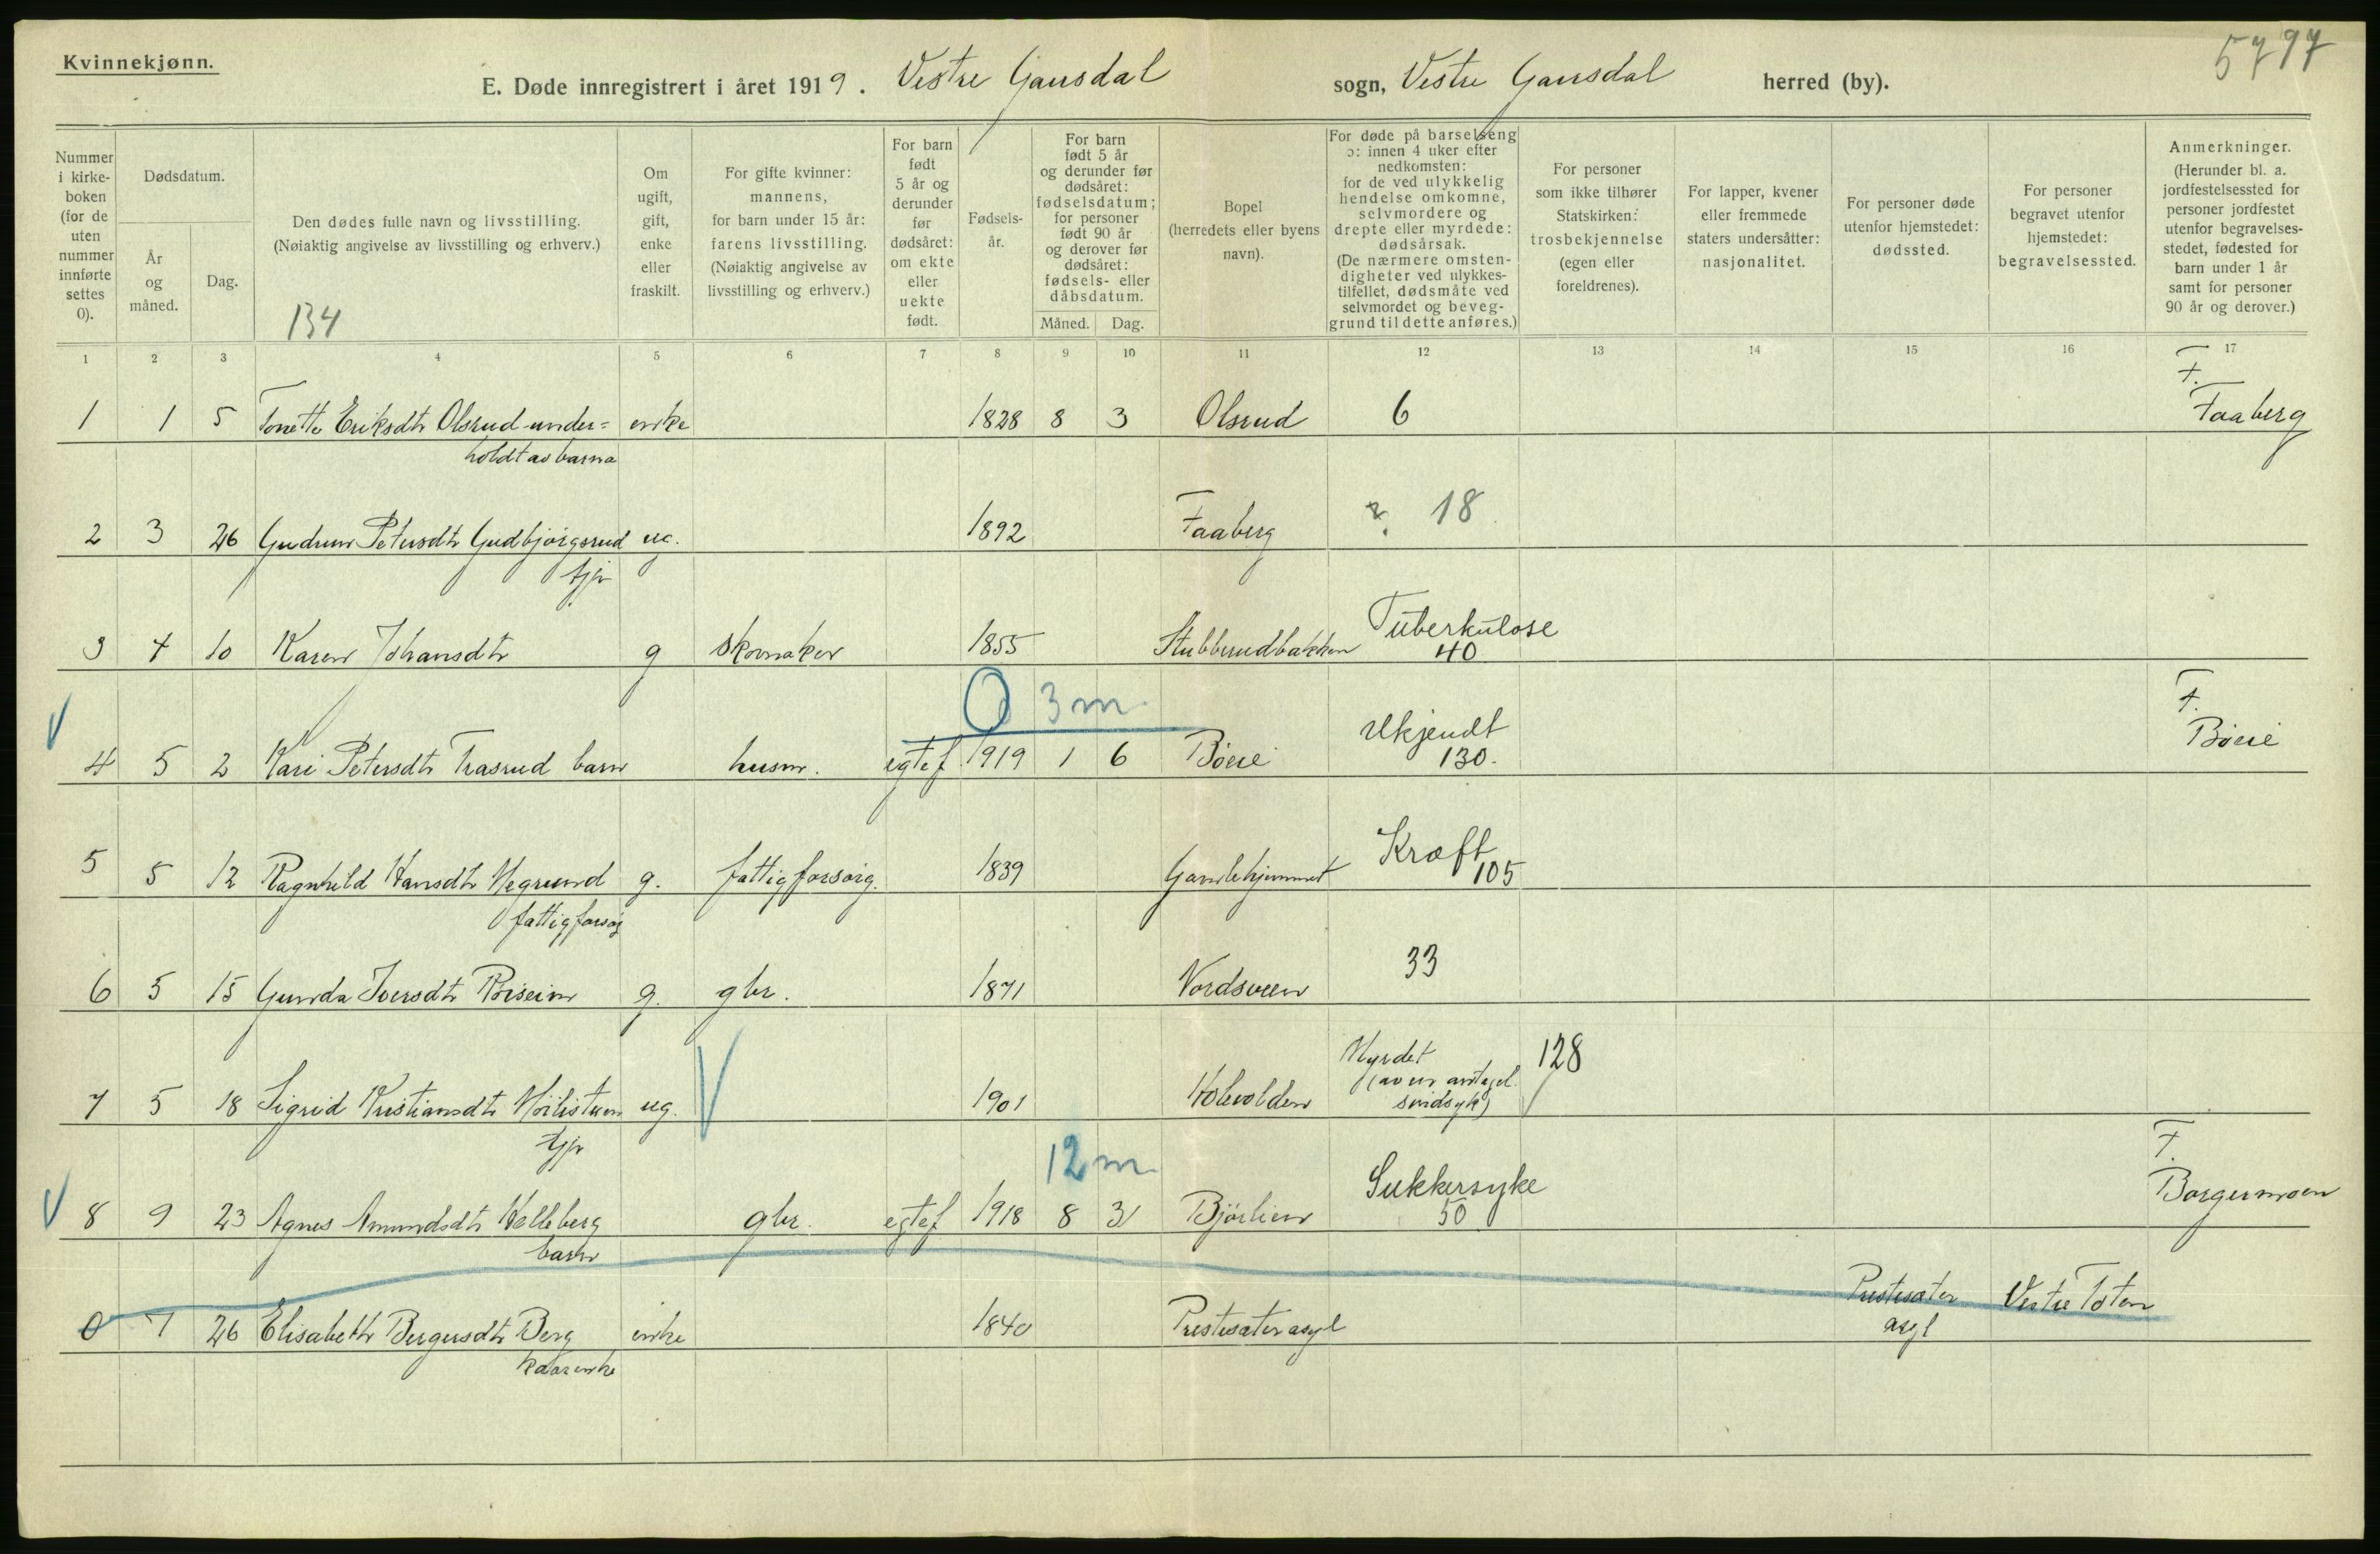 Kvinnekjønn.
5797
E. Døde innregistrert i året 1919. Vestre Gausdal sogn, Vestre Gausdal herred (by).
Nummer i kirkeboken (for de uten nummer innførte settes 0).
Dødsdatum.
År og måned.
Dag.
Den dødes fulle navn og livsstilling.
(Nøiaktig angivelse av livsstilling og erhverv.)
134
Om ugift, gift, enke eller fraskilt.
For gifte kvinner: mannens, for barn under 15 år: farens livsstilling. (Nøiaktig angivelse av livsstilling og erhverv.)
For barn født 5 år og derunder før dødsåret: om ekte eller uekte født.
Fødselsår.
For barn født 5 år og derunder før dødsåret: fødselsdatum; for personer født 90 år og derover før dødsåret: fødsels- eller dåbsdatum.
Måned. Dag.
Bopel (herredets eller byens navn).
For døde på barselseng ɔ: innen 4 uker efter nedkomsten: for de ved ulykkelig hendelse omkomne, selvmordere og drepte eller myrdede: dødsårsak. (De nærmere omstendigheter ved ulykkestilfellet, dødsmåte ved selvmordet og beveggrund til dette anføres.)
For personer som ikke tilhører Statskirken: trosbekjennelse (egen eller foreldrenes).
For lapper, kvener eller fremmede staters undersåtter: nasjonalitet.
For personer døde utenfor hjemstedet: dødssted.
For personer begravet utenfor hjemstedet: begravelsessted.
Anmerkninger. (Herunder bl. a. jordfestelsessted for personer jordfestet utenfor begravelsesstedet, fødested for barn under 1 år samt for personer 90 år og derover.)
1 2 3 4 5 6 7 8 9 10 11 12 13 14 15 16 17
F.
1 1 5 Tonette Eriksdtr Olsrud under= enke 1828 8 3 Olsrud 6 Faaberg
holdt av barna
2 3 26 Gudrun Petersdtr Gudbjørgsrud ug. 1892 Faaberg ? 18
tjp
3 4 10 Karen Johansdtr g skomaker 1855 Stubberudbakken Tuberkulose
40
0 3 m
F.
4 5 2 Kari Petersdtr Trasrud barn husm. egtef 1919 1 6 Bøere Ukjendt Bøere
130.
5 5 12 Ragnhild Hansdtr g. fattigforsørg. 1839 Gamlehjemmet Kræft
105
fattigforsørg
6 5 15 Gunda Iversdtr g. gbr. 1871 Nordsveen 33
7 5 18 Sigrid Kristiansdtr ug. 1901 Holevolden Myrdet 128
(av en antagel.
sindsyk)
tjp
12 m
F.
8 9 23 Agnes Amundsdtr Helleberg gbr. egtef 1918 8 31 Bjørlien Sukkersyke
50
barn
0 7 26 Elisabeth Bergersdtr Berg enke 1840 Prestesæter asyl Prestesæter Vestre Toten
asyl
kaarenke